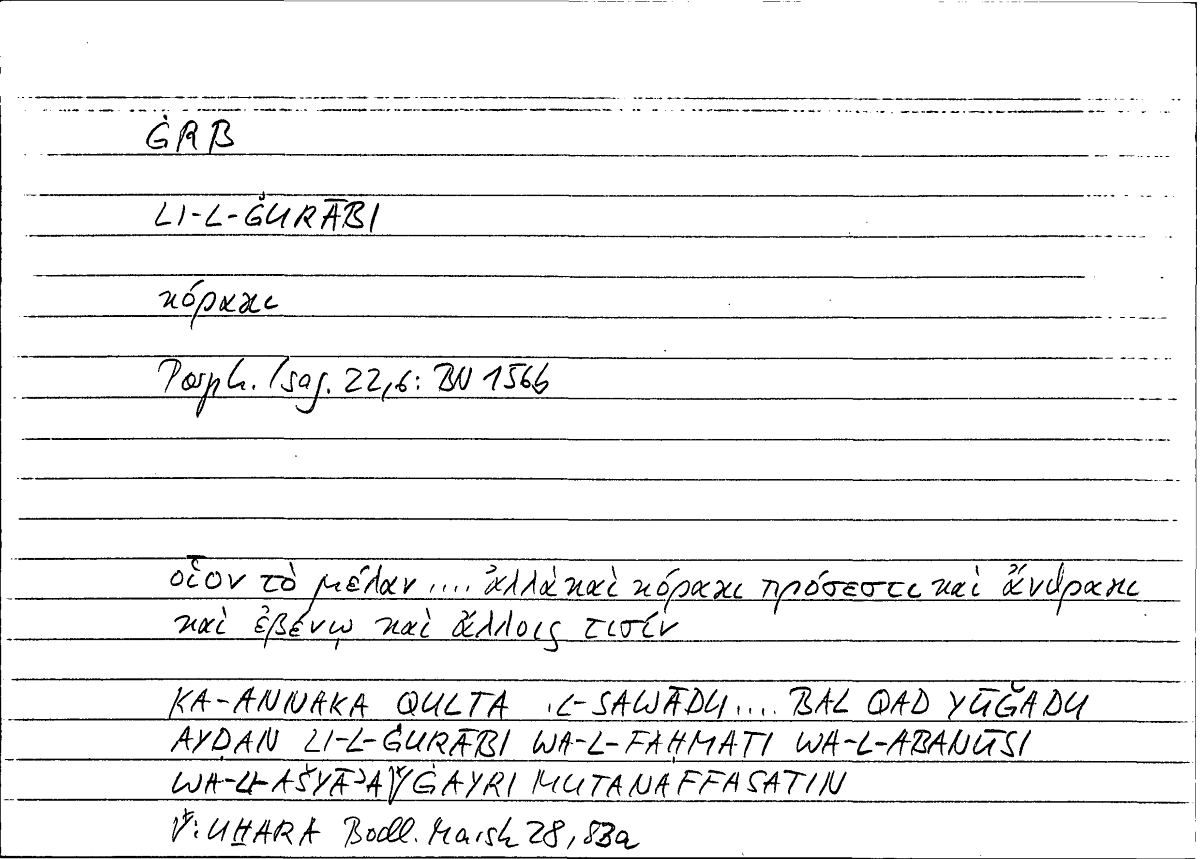 ĠRB
LI-L-ĠURĀBI
κόρακι
Porph. Isag. 22,6: BN 156b
οἷον τὸ μέλαν .... ἀλλὰ καὶ κόρακι πρόσεστι καὶ ἄνθρακι
καὶ ἐβένῳ καὶ ἄλλοις τισίν
KA-ANNAKA QULTA .L-SAWĀDU .... BAL QAD YŪǦADU
AYḌAN LI-L-ĠURĀBI WA-L-FAḤMATI WA-L-ABANŪSI
WA-L-AŠYĀʾA ĠAYRI MUTANAFFASATIN
UḪARA Bodl. Marsh 28, 83a